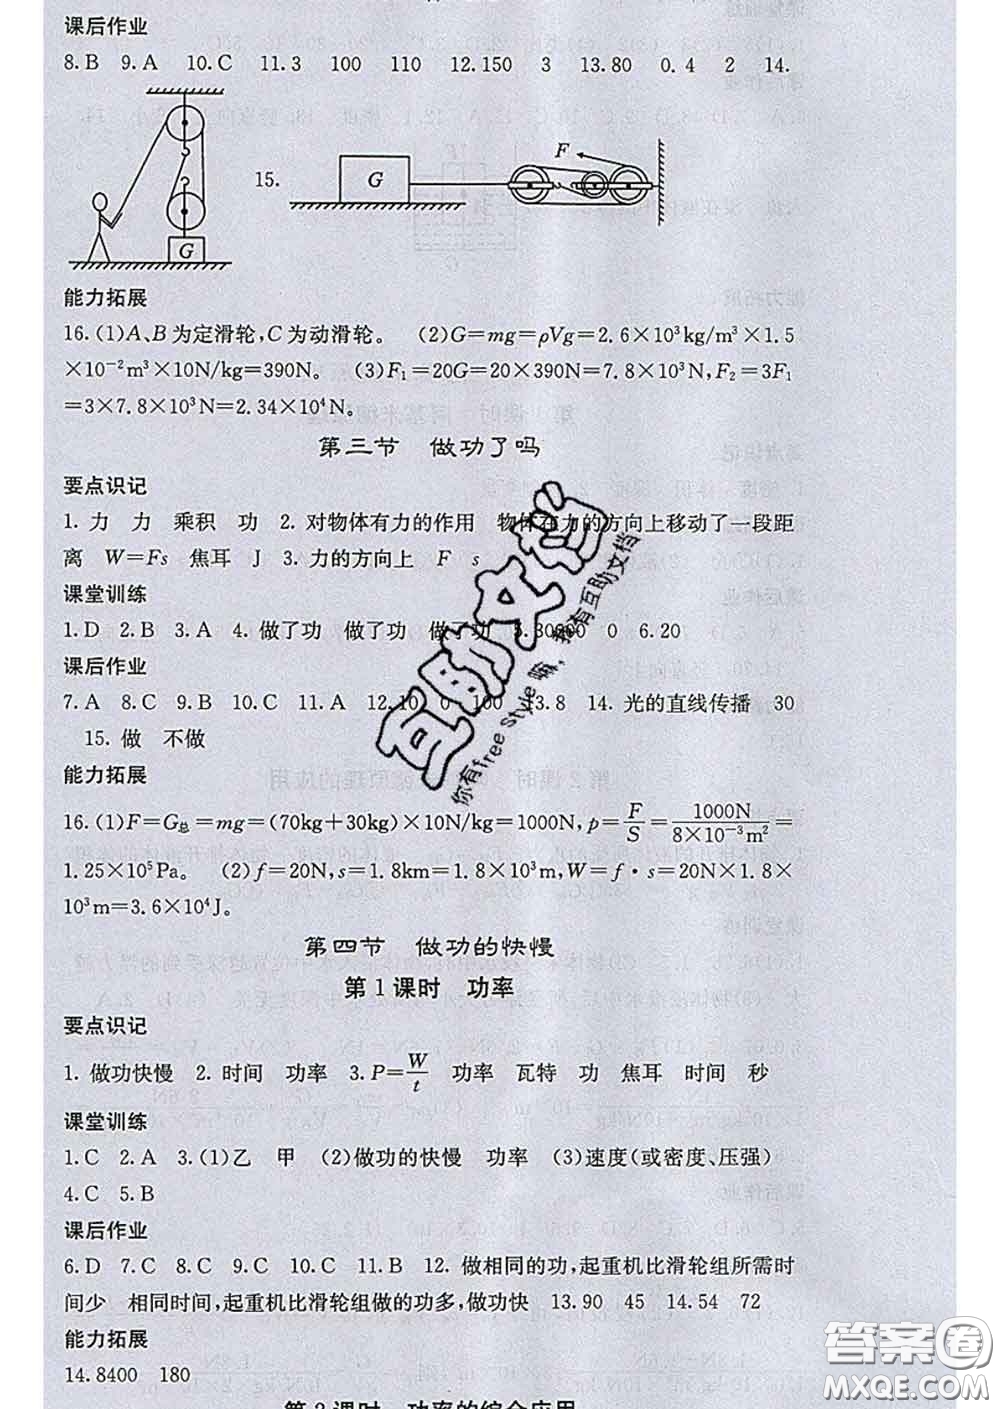 课后作业
8.B 9.A 10.C 11.3 100 110 12.150 3 13.80 0.4 2 14.
15.
G
G
F
能力拓展
16.(1)A、B为定滑轮,C为动滑轮。 (2)G=mg=ρVg=2.6×10³kg/m³×1.5
×10⁻²m³×10N/kg=390N。 (3)F₁=20G=20×390N=7.8×10³N,F₂=3F₁
=3×7.8×10³N=2.34×10⁴N。
第三节 做功了吗
要点识记
1. 力 力 乘积 功 2. 对物体有力的作用 物体在力的方向上移动了一段距
离 W=Fs 焦耳 J 3. 力的方向上 F s
课堂训练
1.D 2.B 3.A 4. 做了功 做了功 做了功 5.30000 0 6.20
课后作业
7.A 8.C 9.B 10.C 11.A 12.10 0 100 13.8 14. 光的直线传播 30
15. 做 不做
能力拓展
16.(1)F=G总=mg=(70kg+30kg)×10N/kg=1000N,p=F/S=1000N/8×10⁻³m²=
1.25×10⁵Pa。 (2)f=20N,s=1.8km=1.8×10³m,W=f·s=20N×1.8×
10³m=3.6×10⁴J。
第四节 做功的快慢
第1课时 功率
要点识记
1. 做功快慢 2. 时间 功率 3.P=W/t 功率 瓦特 功 焦耳 时间 秒
课堂训练
1.C 2.A 3.(1)乙 甲 (2)做功的快慢 功率 (3)速度(或密度、压强)
4.C 5.B
课后作业
6.D 7.C 8.C 9.C 10.C 11.B 12. 做相同的功,起重机比滑轮组所需时
间少 相同时间,起重机比滑轮组做的功多,做功快 13.90 45 14.54 72
能力拓展
14.8400 180
第2课时 功率的综合应用
互助文档
你有free Style嘛,我有互助文档
答案圈
MXQE.COM